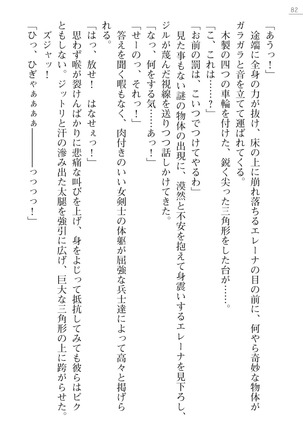 82
「あうっ！」
途端に全身の力が抜け、床の上に崩れ落ちるエレーナの目の前に、何やら奇妙な物体が
ガラガラと音を立てて運ばれてくる。
木製の四つの車輪を付けた、鋭く尖った三角形をした台が……。
「こ、これは……」
「お前の罰は、こいつでつけてやるわ」
見た事もない謎の物体の出現に、漠然と不安を抱えて身震いするエレーナを見下ろし、
ジルが蔑んだ視線を送りつつ話しかけてきた。
「なっ、何をする気……あっ！」
「せーのっ、それっ！」
答えを聞く暇もなく、肉付きのいい女剣士の体躯が屈強な兵士達によって高々と掲げら
れる。
「はっ、放せ！　はなせぇっ！」
思わず喉が裂けんばかりに悲痛な叫びを上げ、身をよじって抵抗してみても彼らはビク
ともしない。ジットリと汗の滲み出た太腿を強引に広げ、巨大な三角形の上に跨がらせた。
ズジャッ！
「ひっ、ひぎゃぁぁぁぁ――――っっっっ！」